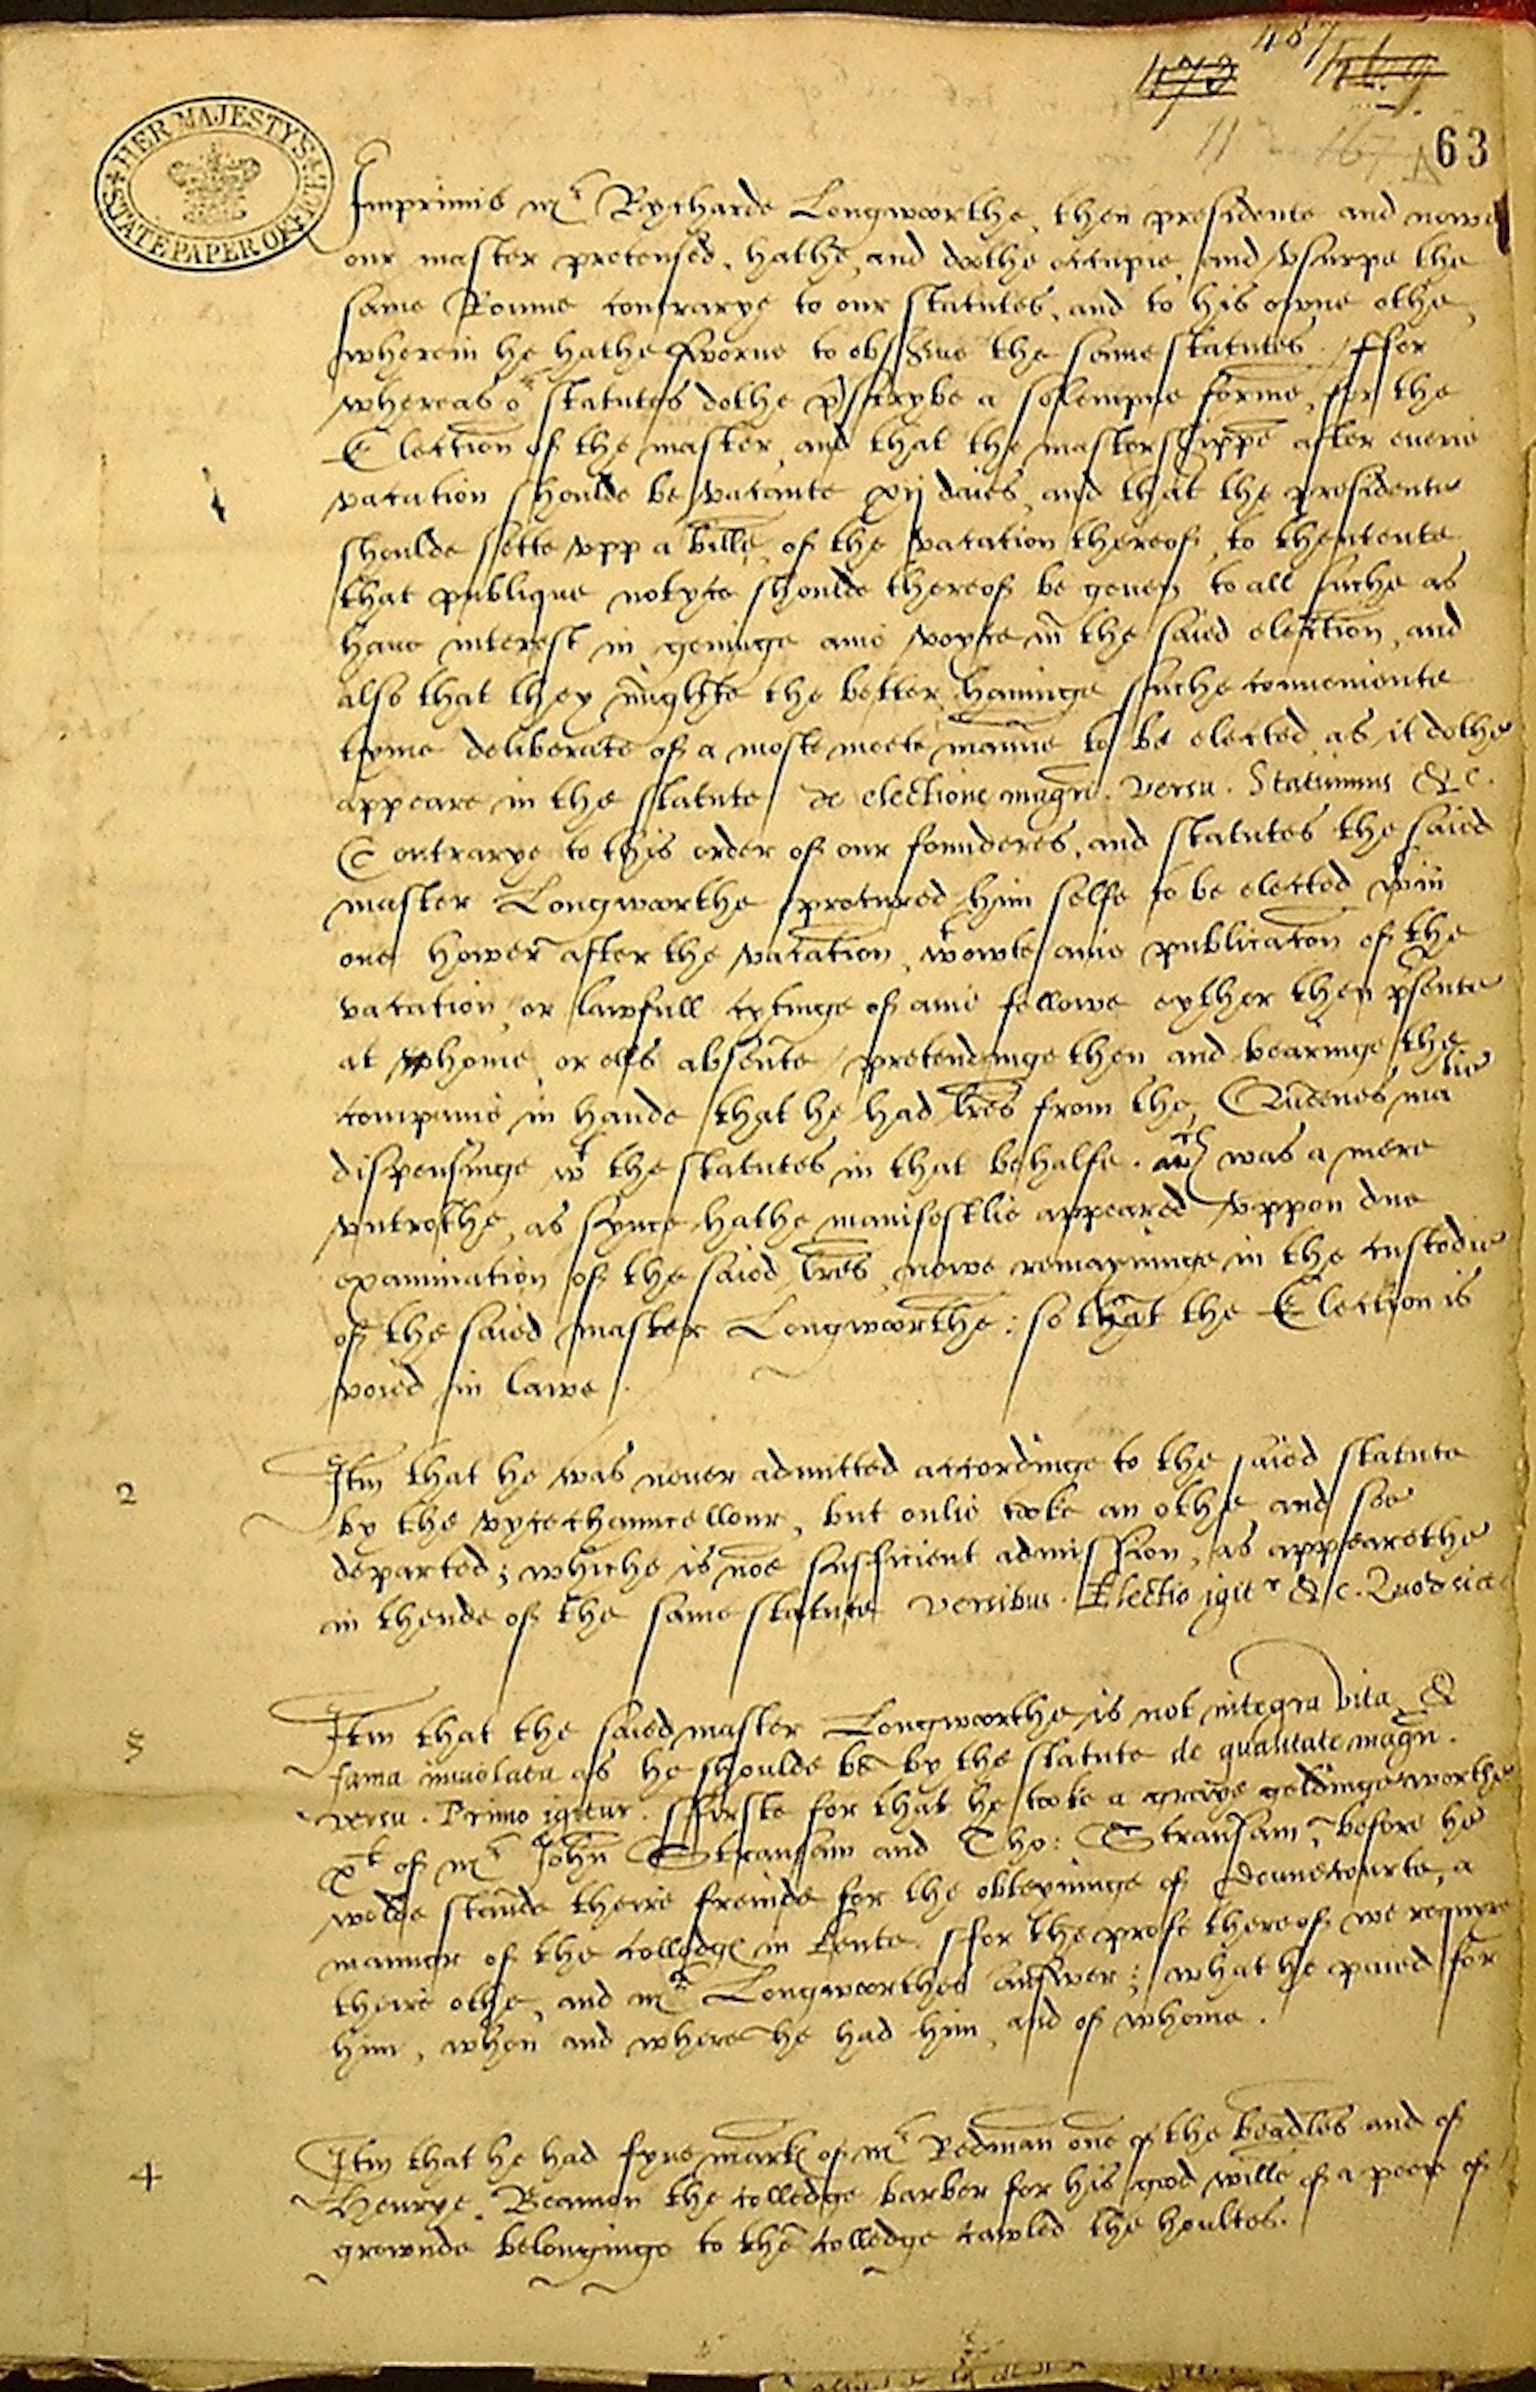 487
63
HER MAJESTY'S STATE PAPER OFFICE
Imprimis mr Rycharde Longwoorthe, then presidente and nowe
our master pretensed, hathe, and doothe occupie, and vsurpe the
same Roume contrarye to our statutes, and to his owne othe,
wherein he hathe sworne to obserue the same statutes. ffor
whereas or statutes dothe prscrybe a solempne forme, for the
Election of the master, and that the mastershippe after euerie
vacation shoulde be vacante xij daies, and that the presidente
shoulde sette vpp a bille, of the vacation thereof, to thentente
that publique notyce shoulde thereof be geuen to all suche as
haue interest in geuinge anie voyce in the saied election, and
also that they mighte the better hauinge suche conueniente
tyme deliberate of a moste meete manne to be elected as it dothe
appeare in the statute de electione magri. versu. Statuimus &c.
Contrarye to this order of our founderes, and statutes the saied
master Longwoorthe procured him selfe to be elected wtin
one hower after the vacation, wtowte anie publicaton of the
vacation, or lawfull cytinge of anie fellowe eyther then prsente
at home, or ells absente, pretendinge then and bearinge the
companie in hande that he had lres from the Queenes matie
dispensinge wt the statutes in that behalfe. wch was a mere
vntrothe, as synce hathe manifestlie appeared vppon due
examination of the saied lres, nowe remayninge in the custodie
of the saied master Longwoorthe: so that the Election is
voied in lawe.
2
Itm that he was neuer admitted accordinge to the saied statute
by the vycechauncellour, but onlie tooke an othe, and soe
departed; whiche is noe sufficient admission, as appearethe
in thende of the same statute versibus. Electio igitr &c. Quod sic
3
Itm that the saied master Longwoorthe is not integra vita &
fama inuiolata as he shoulde be by the statute de qualitate magri.
versu. Primo igitur. ffirste for that he tooke a graye geldinge worthe
of mr John Stransam and Tho: Stransam, before he
wolde stande theire freinde for the obteyninge of Downecourte, a
mannor of the colledge in Kente. ffor the profe thereof we requyre
theire othe, and mr Longwoorthes answer; what he paied for
him, when and where he had him, and of whome.
4
Itm that he had fyue mark of mr Redman one of the beadles and of
Henrye Beamon the colledge barber for his good wille of a peece of
grownde belonginge to the colledge cawled the houltes.